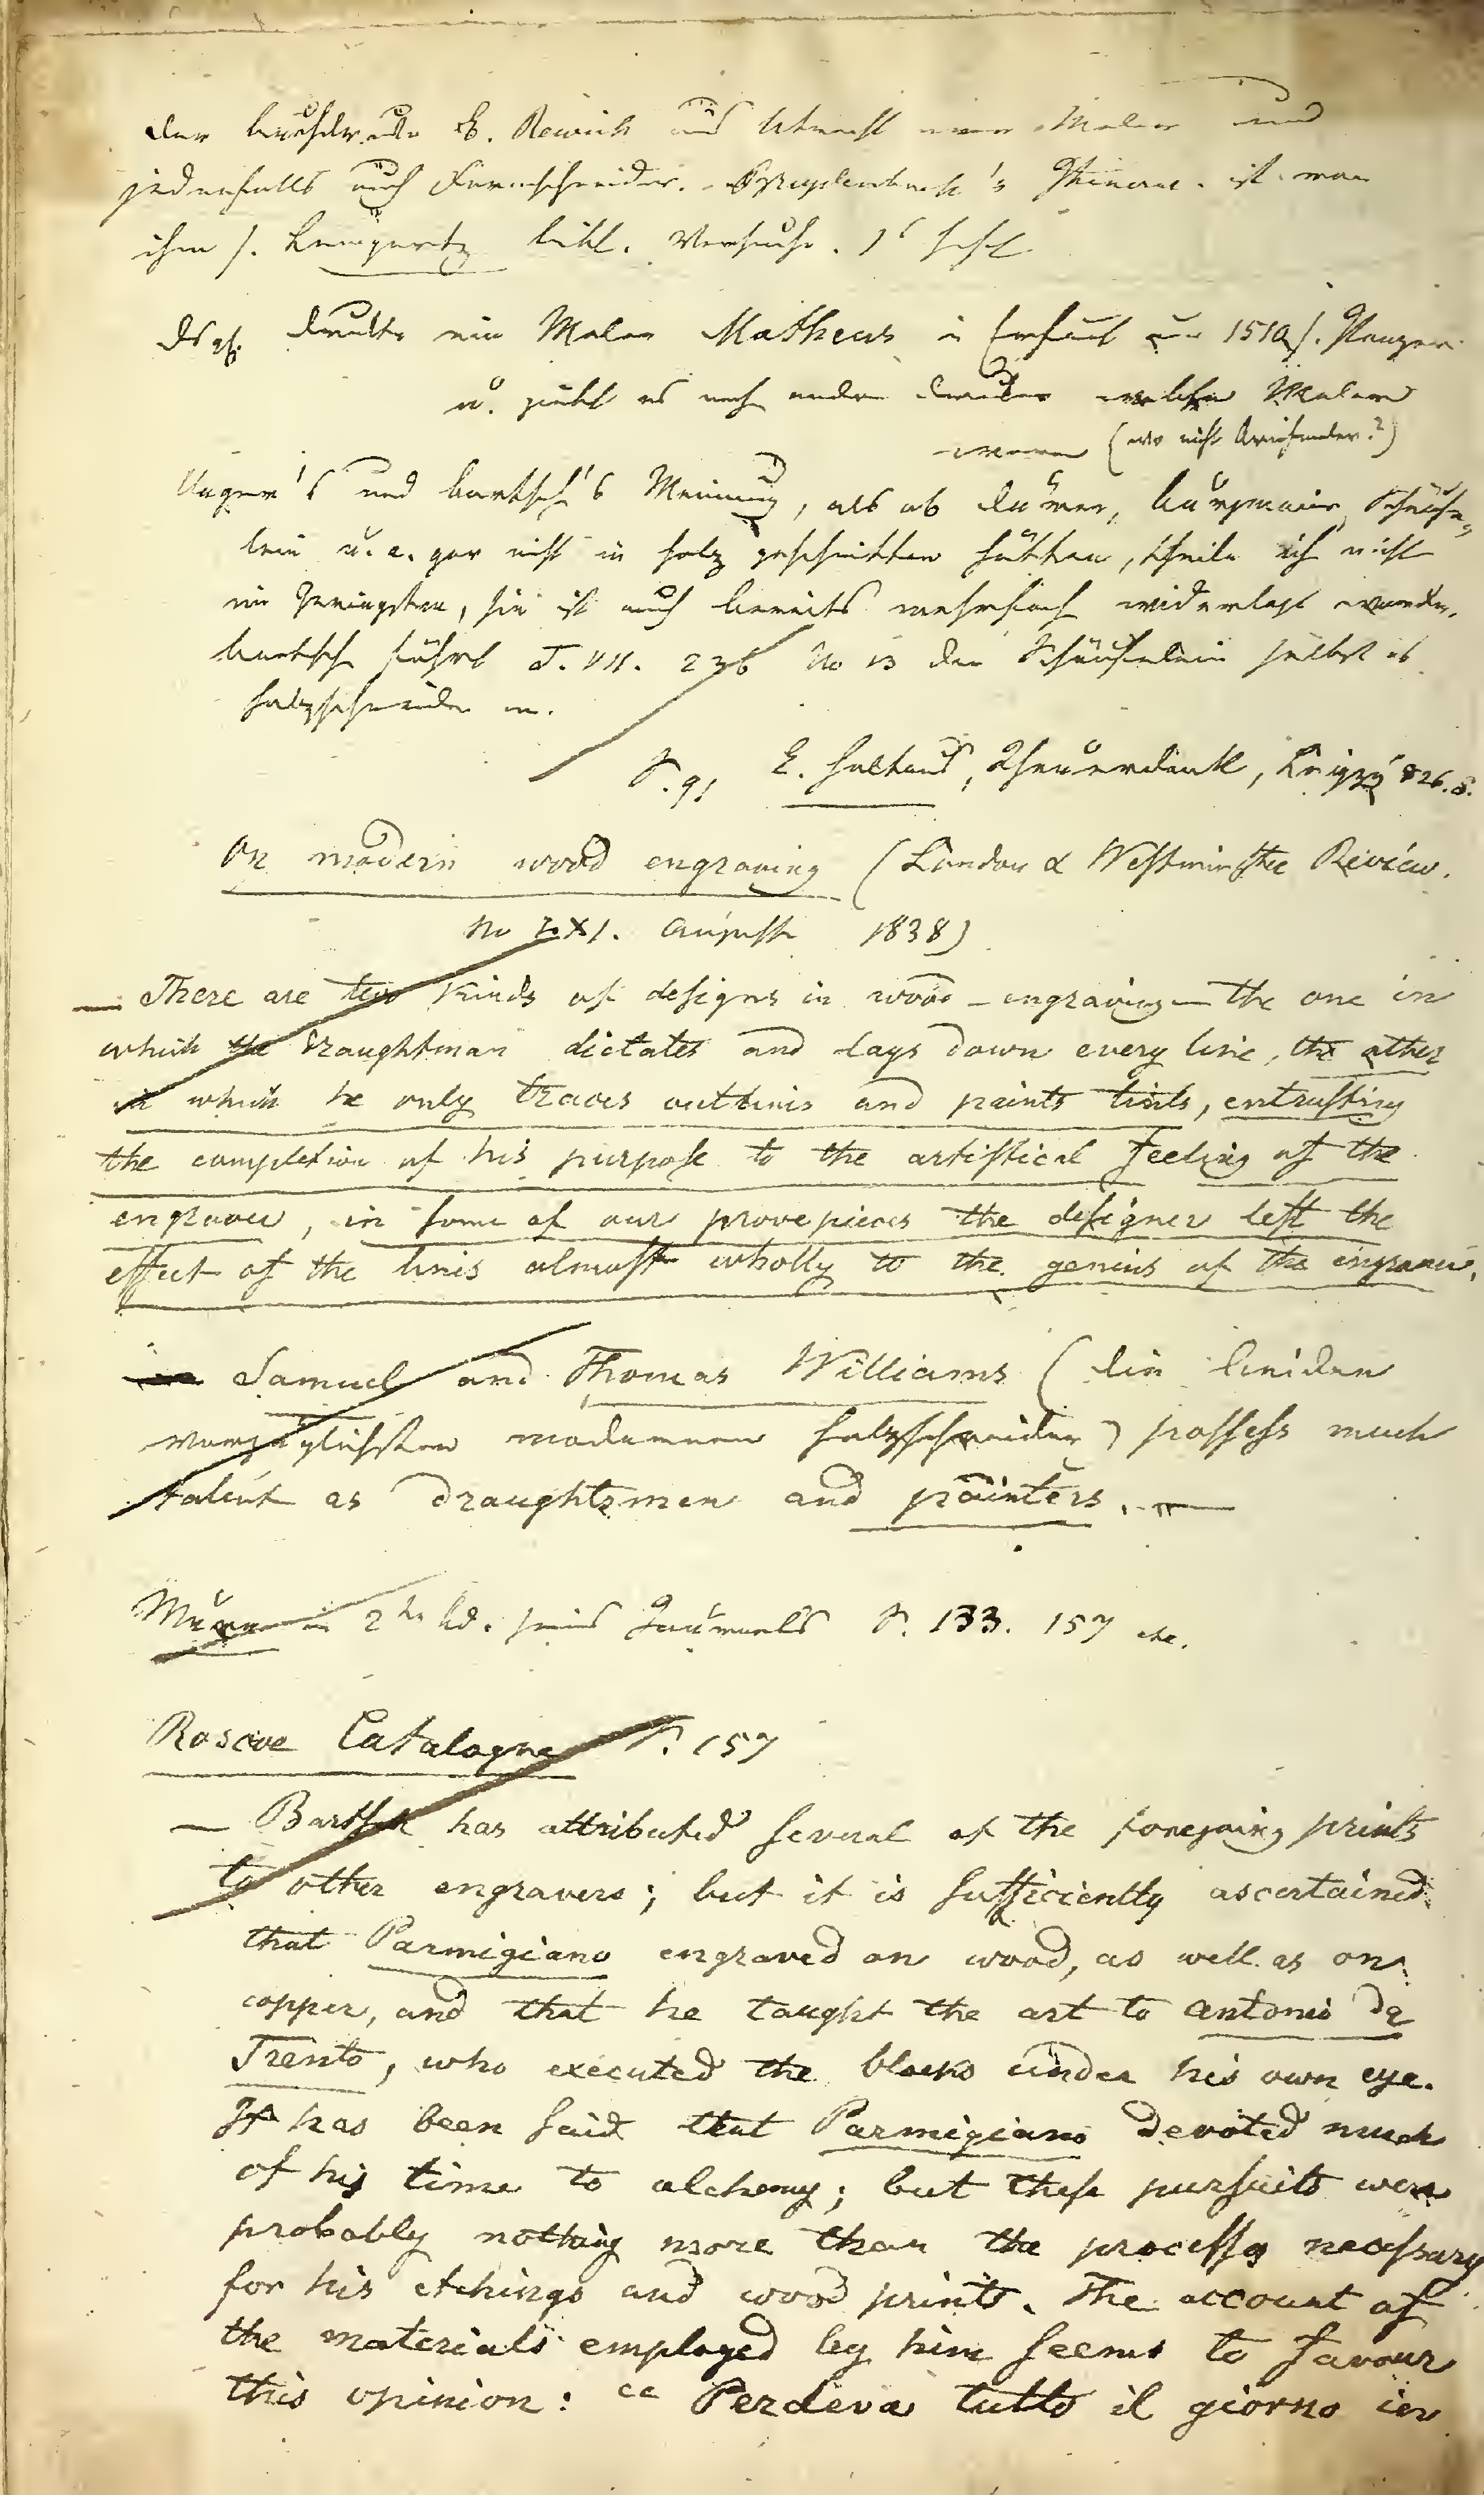 Der Buchdrucker E. Rewich aus Utrecht war Maler und
jedenfalls auch Formschneider. Itinerar. ist von
ihm s. Lempertz bibl. Versuche. 1s Heft
Dsgl. druckte ein Maler Matheus in Erfurt um 1510 s. Panzer.
u. giebt es noch andere Drucker welche Maler
waren (wo nicht Briefmaler?)
Unger's und Bartsch's Meinung, als ob Dürer, Burgmair, Schäufe-
lein u. a. gar nicht in Holz geschnitten hätten, theile ich nicht
im Geringsten, sie ist auch bereits mehrfach widerlegt worden.
Bartsch führt T. VII. 236 No 13 den Schäufelein selbst als
Holzschneider an.
S. 91 E. Haltaus, Theuerdank, Leipzig 826. 8.
On modern wood engraving (London & Westminster Review.
No XXI. August 1838)
— There are two kinds of designs in wood-engraving — the one in
which the draughtman dictates and lays down every line, the other
in which he only traces outlines and paints tints, entrusting
the completion of his purpose to the artistical feeling of the
engraver, in some of our provepieces the designer left the
effect of the lines almost wholly to the genius of the engraver.
Samuel and Thomas Williams (die beiden
vorzüglichsten modernen Holzschneider) possess much
talent as draughtsmen and painters. —
Murr in 2ten Bd. seines Journals S. 133. 157 etc.
Roscoe Catalogue S. 157
— Bartsch has attributed several of the foregoing prints
to other engravers; but it is sufficiently ascertained
that Parmigiano engraved on wood, as well as on
copper, and that he taught the art to Antonio da
Trento, who executed the blocks under his own eye.
It has been said that Parmigiano devoted much
of his time to alchemy; but these pursuits were
probably nothing more than the processes necessary
for his etchings and wood prints. The account of
the materials employed by him seems to favour
this opinion: "Perdeva tutto il giorno in